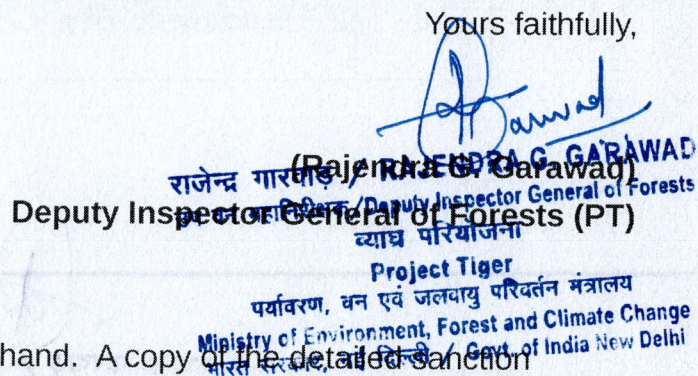 Yours faithfully,
Garwad
(Rajendra G. Garawad)
राजेन्द्र गारवाड़ / RAJENDRA G. GARAWAD
Deputy Inspector General of Forests (PT)
उप वन महानिरीक्षक/Deputy Inspector General of Forests
व्याघ्र परियोजना
Project Tiger
पर्यावरण, वन एवं जलवायु परिवर्तन मंत्रालय
Ministry of Environment, Forest and Climate Change
भारत सरकार, नई दिल्ली / Govt. of India New Delhi
hand. A copy of the detailed sanction